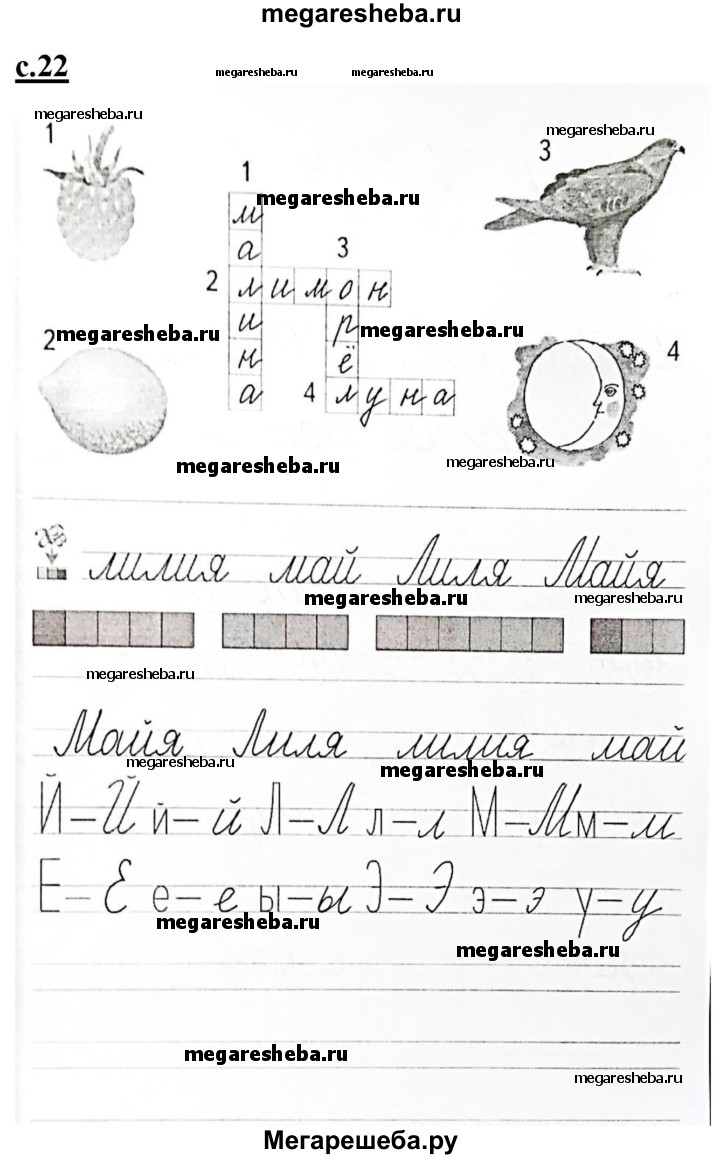 megaresheba.ru
с.22
megaresheba.ru megaresheba.ru
megaresheba.ru
megaresheba.ru
1
3
1
megaresheba.ru
м
а
3
2 лимон
и
р
megaresheba.ru
megaresheba.ru
2
н
ё
4
а
4 луна
megaresheba.ru
megaresheba.ru
лилия май Лиля Майя
megaresheba.ru
megaresheba.ru
megaresheba.ru
Майя Лиля лилия май
megaresheba.ru
megaresheba.ru
Й–Й й–й Л–Л л–л М–М м–м
Е–Е е–е ы–ы Э–Э э–э у–у
megaresheba.ru
megaresheba.ru
megaresheba.ru
megaresheba.ru
Мегарешеба.ру